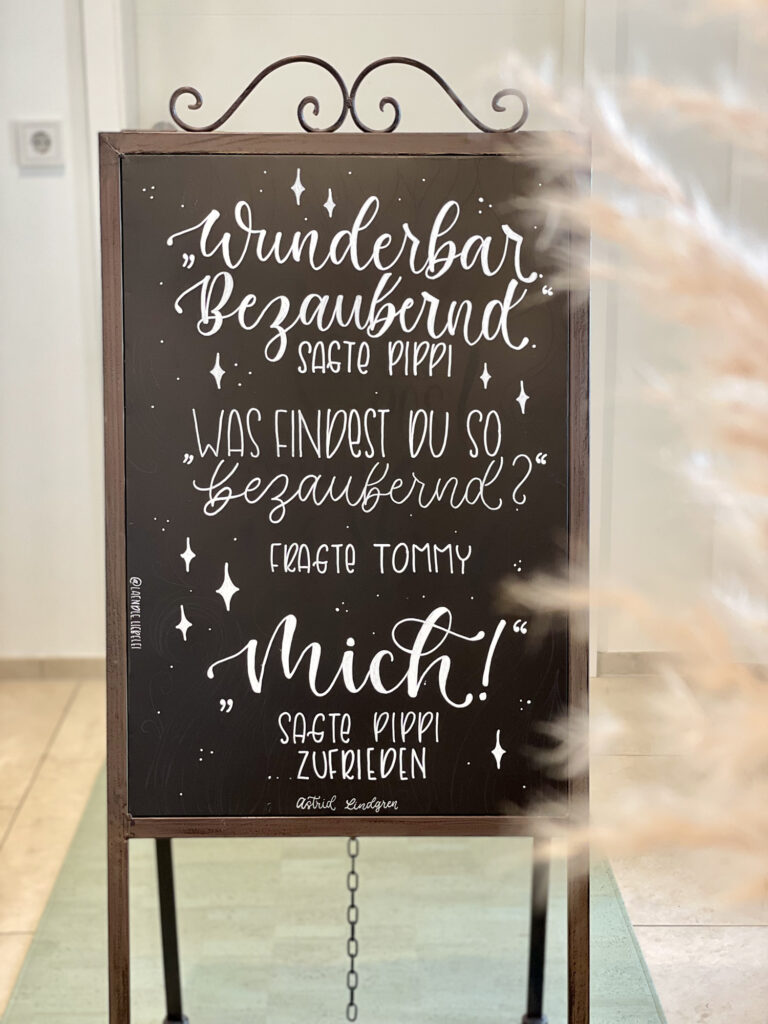 „Wunderbar.
Bezaubernd.“
SAGTE PIPPI
„WAS FINDEST DU SO
bezaubernd?“
FRAGTE TOMMY
„Mich!“
SAGTE PIPPI
ZUFRIEDEN
Astrid Lindgren
@LAENDLE.LIEBELEI